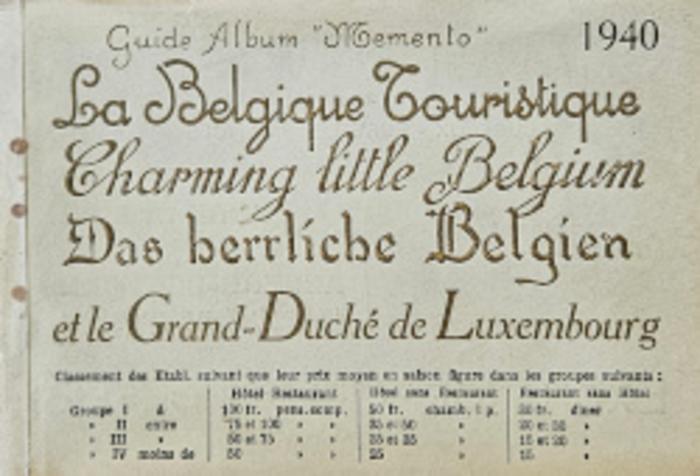 Guide Album "Memento" 1940
La Belgique Touristique
Charming little Belgium
Das herrliche Belgien
et le Grand-Duché de Luxembourg
Classement des Etabl. suivant que leur prix moyen en saison figure dans les groupes suivants :
Hôtel Restaurant Hôtel sans Restaurant Restaurant sans Hôtel
Groupe I à fr. pens. comp. 50 fr. chamb. 1 p. 30 fr. dîner
" II entre 75 et 100 " " 35 et 50 " 20 et 30 "
" III " 50 et 75 " " 25 et 35 " 15 et 20 "
" IV moins de 50 " " 25 " 15 "